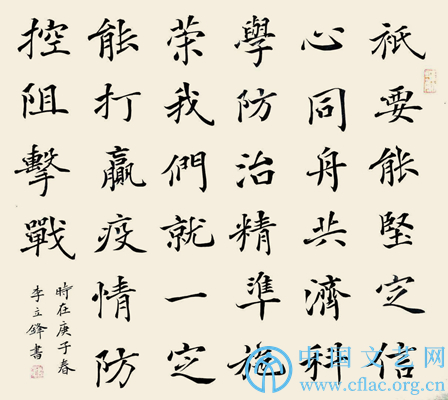 祇要能堅定信
心同舟共濟科
學防治精準施
策我們就一定
能打贏疫情防
控阻擊戰
時在庚子春
李立鋒書
中国文艺网
www.cflac.org.cn